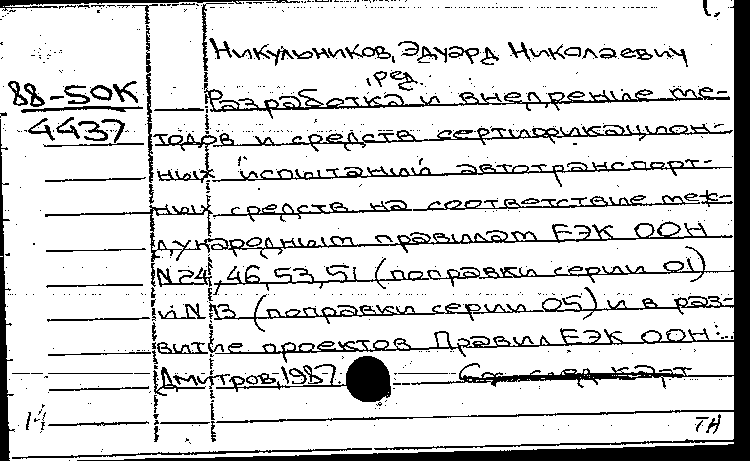 Никульников, Эдуард Николаевич
, ред.
88-50К
4437
Разработка и внедрение ме-
тодов и средств сертификацион-
ных испытаний автотранспорт-
ных средств на соответствие меж-
дународным правилам ЕЭК ООН
N24, 46, 53, 51 (поправки серии 01)
и N 13 (поправки серии 05) и в раз-
витие проектов Правил ЕЭК ООН:..
Дмитров, 1987.
См. след карт
14
ТН